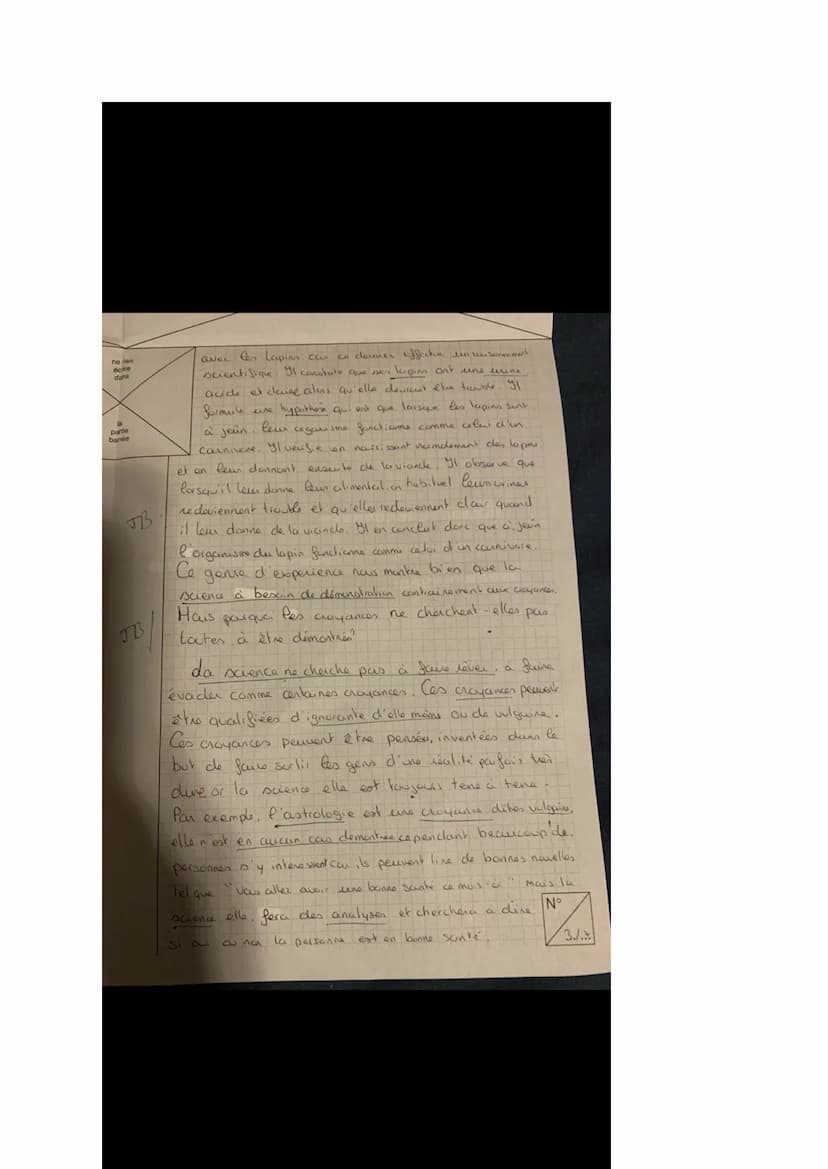 ne rien
écrire
dans
la
partie
barrée
avec les Lapins car ce dernier effectue un raisonnement
scientifique. Il constate que ses lapins ont une urine
acide et claire alors qu'elle devrait être trouble. Il
formule une hypothèse qui est que lorsque les lapins sont
à jeûn leur organisme fonctionne comme celui d'un
carnivore. Il vérifie en nourrissant normalement des lapins
et en leur donnant ensuite de la viande. Il observe que
lorsqu'il leur donne leur alimentation habituel leurs urines
redeviennent trouble et qu'elles redeviennent clair quand
il leur donne de la viande. Il en conclut donc que à jeûn
l'organisme du lapin fonctionne comme celui d'un carnivore.
Ce genre d'expérience nous montre bien que la
science à besoin de démonstration contrairement aux croyances.
Mais pourquoi les croyances ne cherchent-elles pas
toutes à être démontrés?
TB
TB
La science ne cherche pas à faire rêver, a faire
évader comme certaines croyances. Ces croyances peuvent
être qualifiées d'ignorante d'elle même ou de vulgaire.
Ces croyances peuvent être pensées, inventées dans le
but de faire sortir les gens d'une réalité parfois très
dure or la science elle est toujours terre à terre.
Par exemple, l'astrologie est une croyance dites vulgaire,
elle n'est en aucun cas démontrée cependant beaucoup de
personnes s'y intéressent car ils peuvent lire de bonnes nouvelles
tel que "Vous allez avoir une bonne santé ce mois-ci" Mais la
science elle, fera des analyses et cherchera à dire
si ou ou non la personne est en bonne santé.
N°
3/..